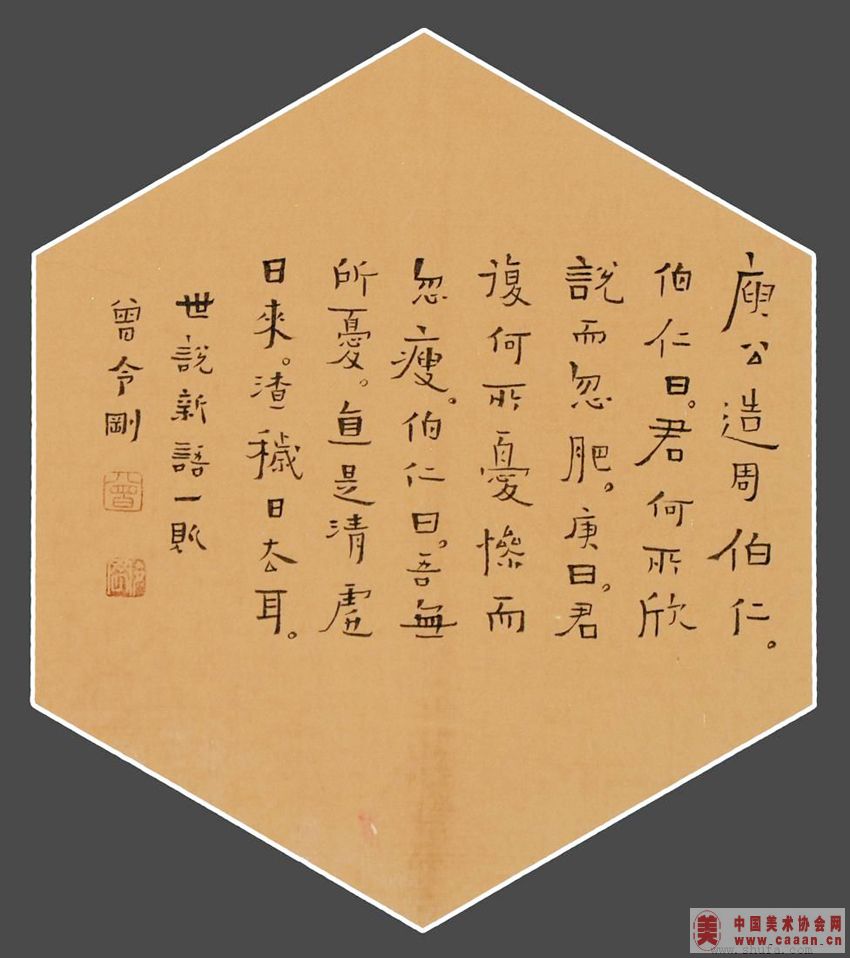 庾公造周伯仁。
伯仁曰。君何所欣
說而忽肥。庾曰。君
復何所憂慘而
忽瘦。伯仁曰。吾無
所憂。直是清虛
日來。渣穢日去耳。
世說新語一則
曾令剛
曾
中国美术协会网
www.caaan.cn
www.shufa.com